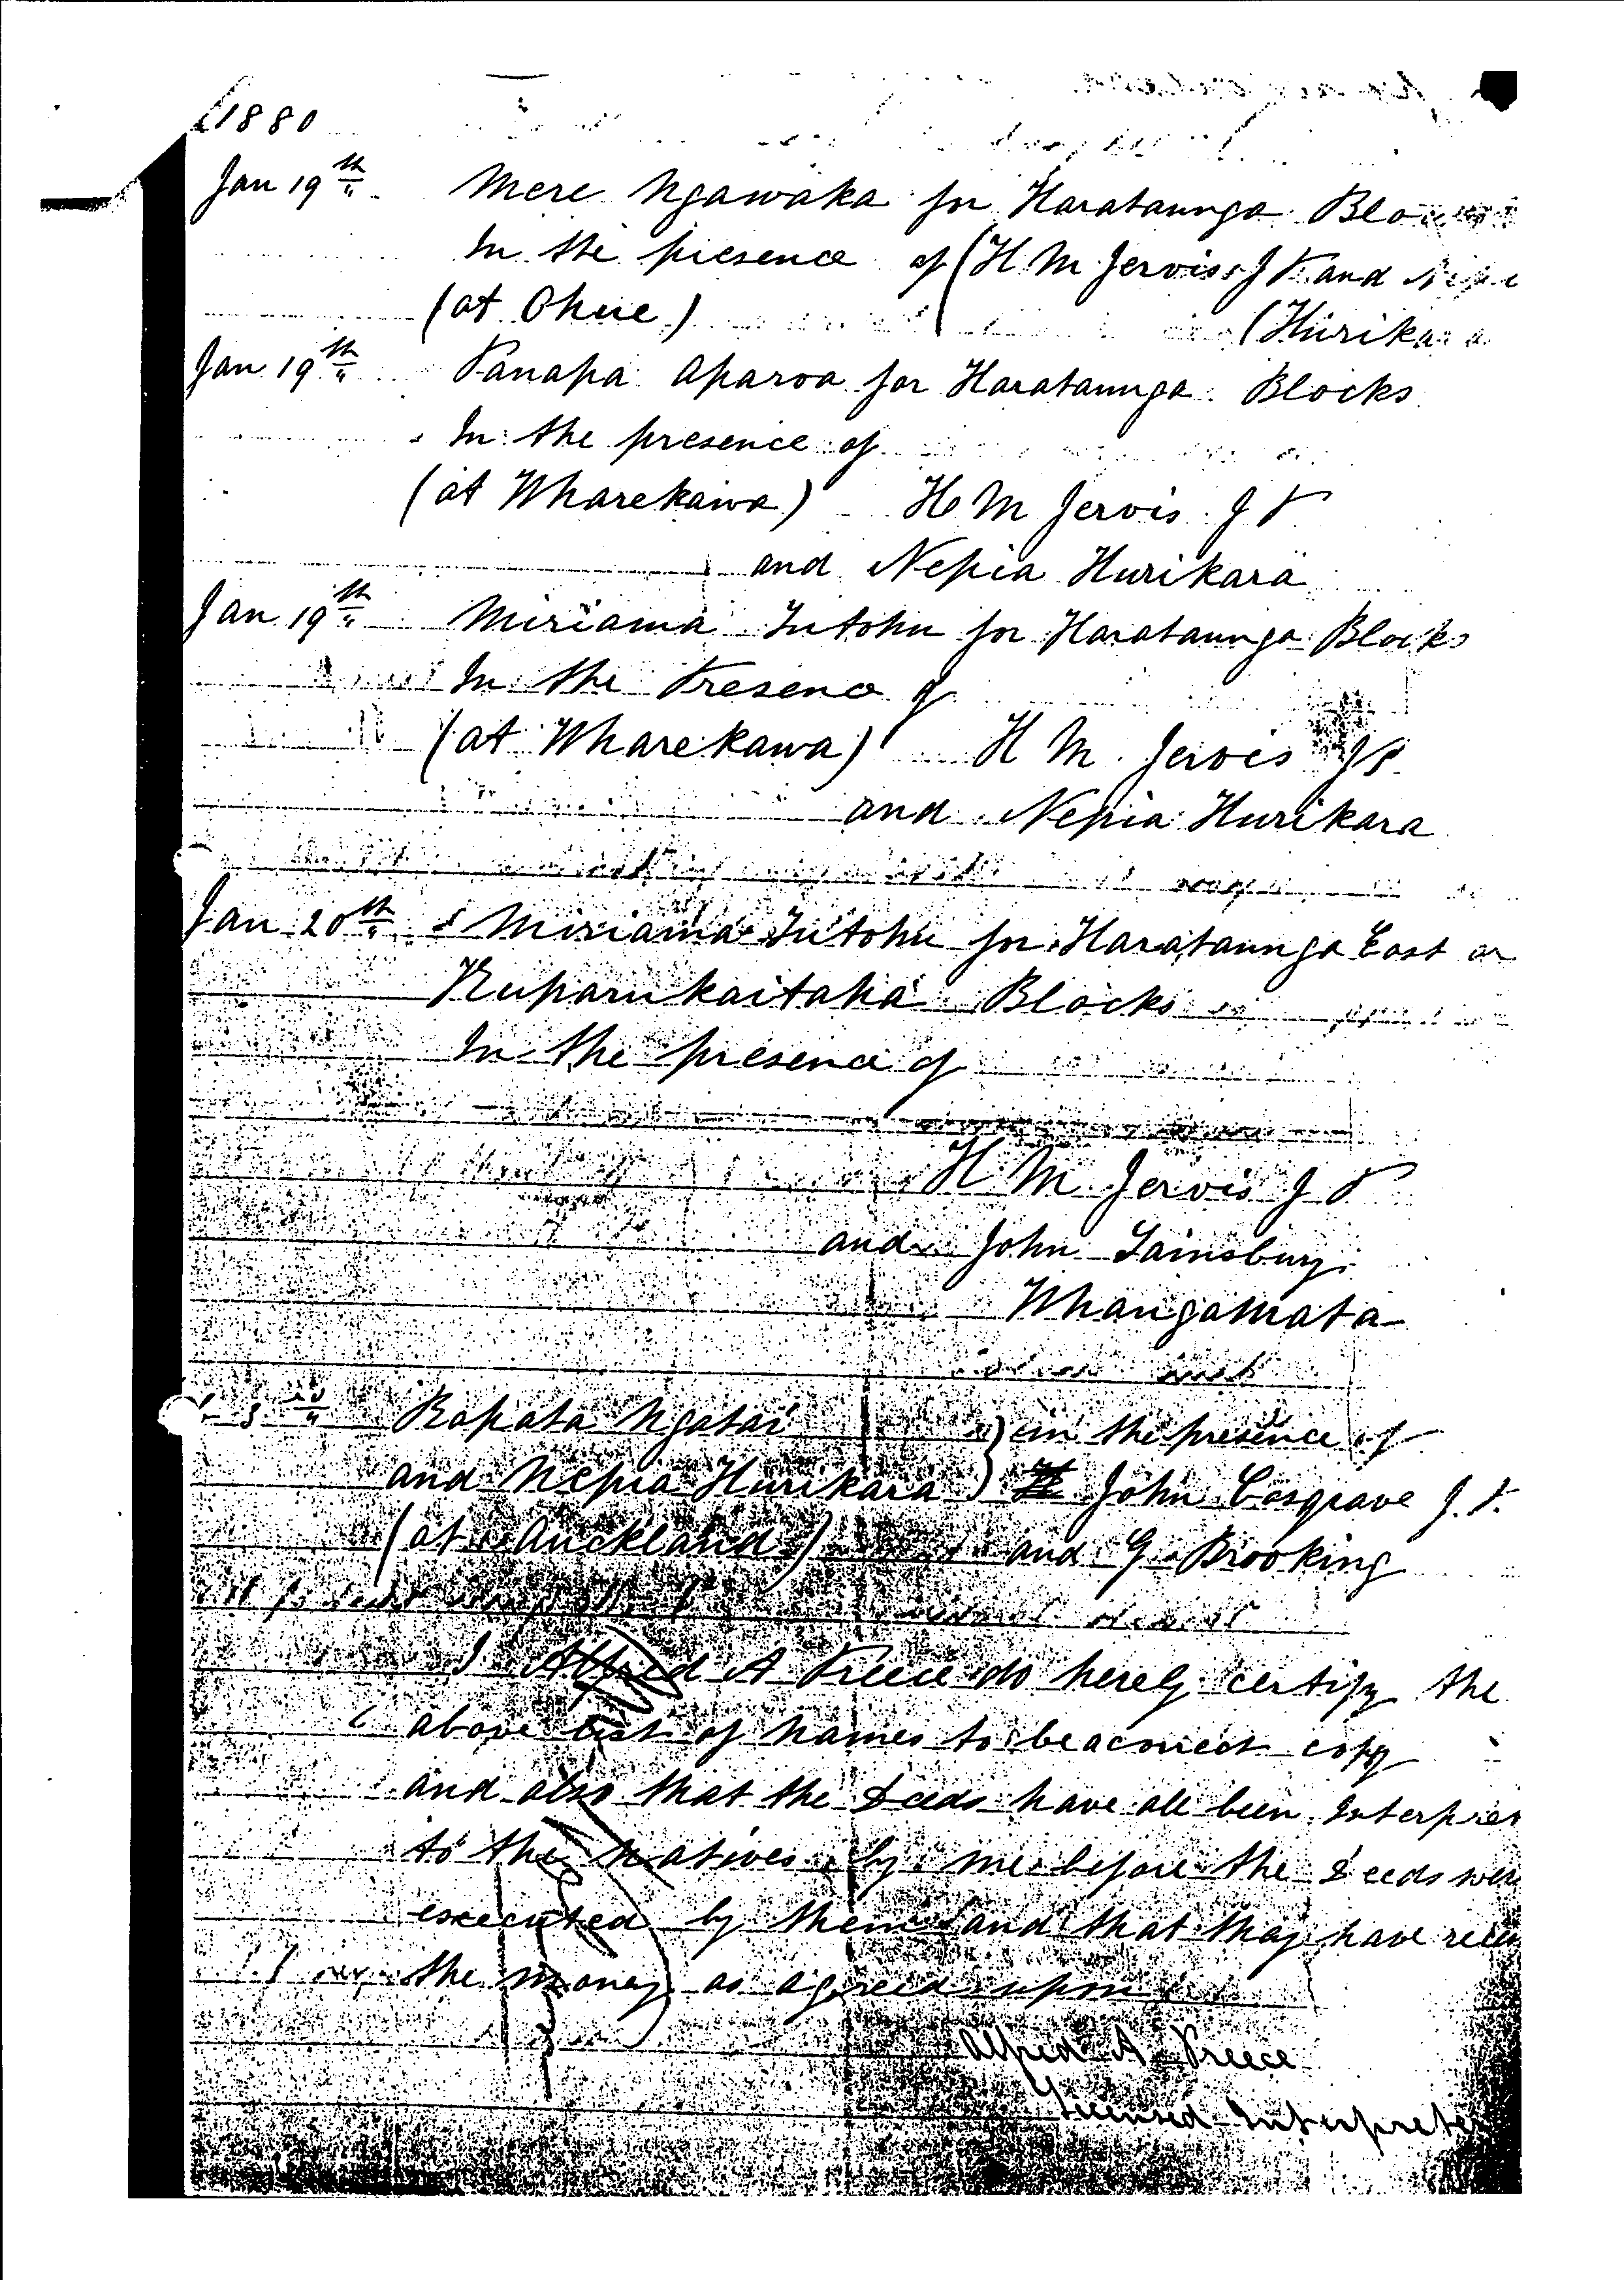 1880
Jan 19th Mere Ngawaka for Harataunga
In the presence of (H M Jervis J P and
(at Ohue) (Hurikara
Jan 19th Panapa Aparoa for Harataunga Blocks
In the presence of
(at Wharekawa) H M Jervis J P
and Nepia Hurikara
Jan 19th Miriama Tutohu for Harataunga Blocks
In the Presence of
(at Wharekawa) H M Jervis JP
and Nepia Hurikara
Jan 20th Miriama Tutohu for Harataunga East
Kuparukaitaha Blocks
In the presence of
H M Jervis J P
and John Sainsbury
Whangamata
Rapata Ngatai ) in the presence of
and Nepia Hurikara ) John Cosgrave J.P.
(at Auckland) and G Brooking
I Alfred A Preece do hereby certify the
above list of names to be a correct copy
and also that the Deeds have all been Interpret
to the natives by me before the Deeds were
executed by them and that thay have
the money as agreed upon
Alfred A Preece
Licensed Interpreter